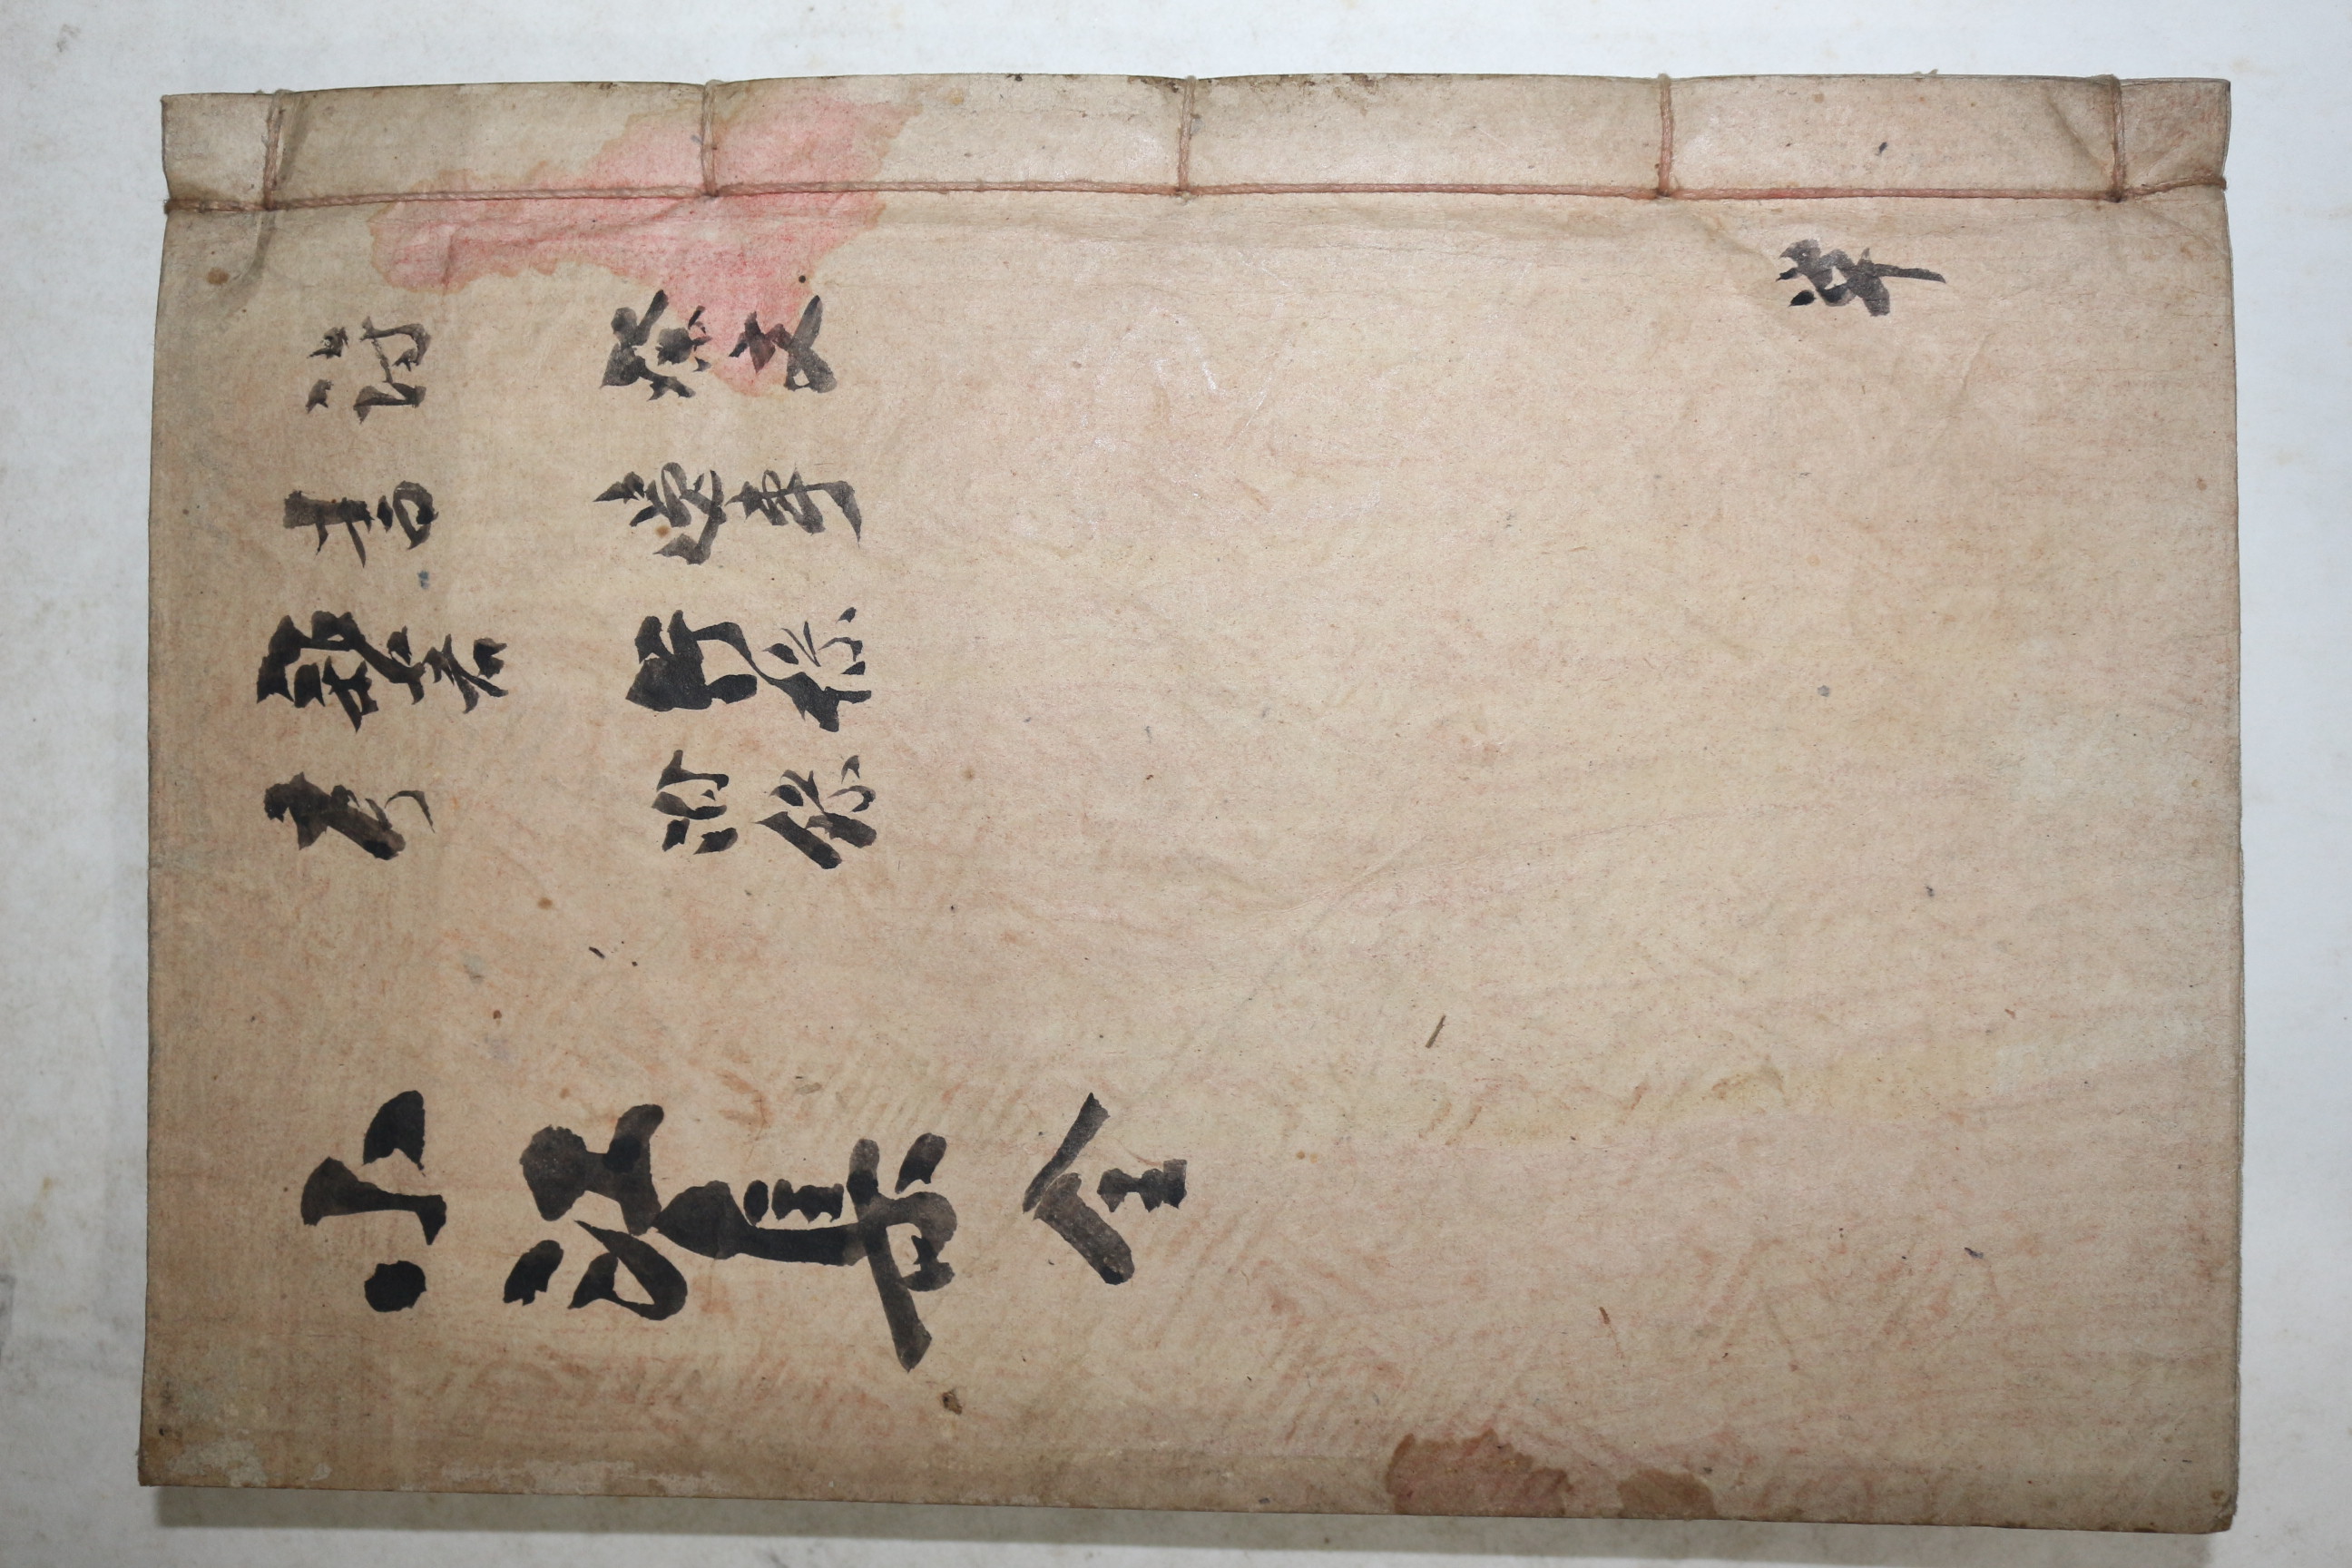 詩
祭文
書
遺事
雜著
行錄
考
附錄
小江集 全
單